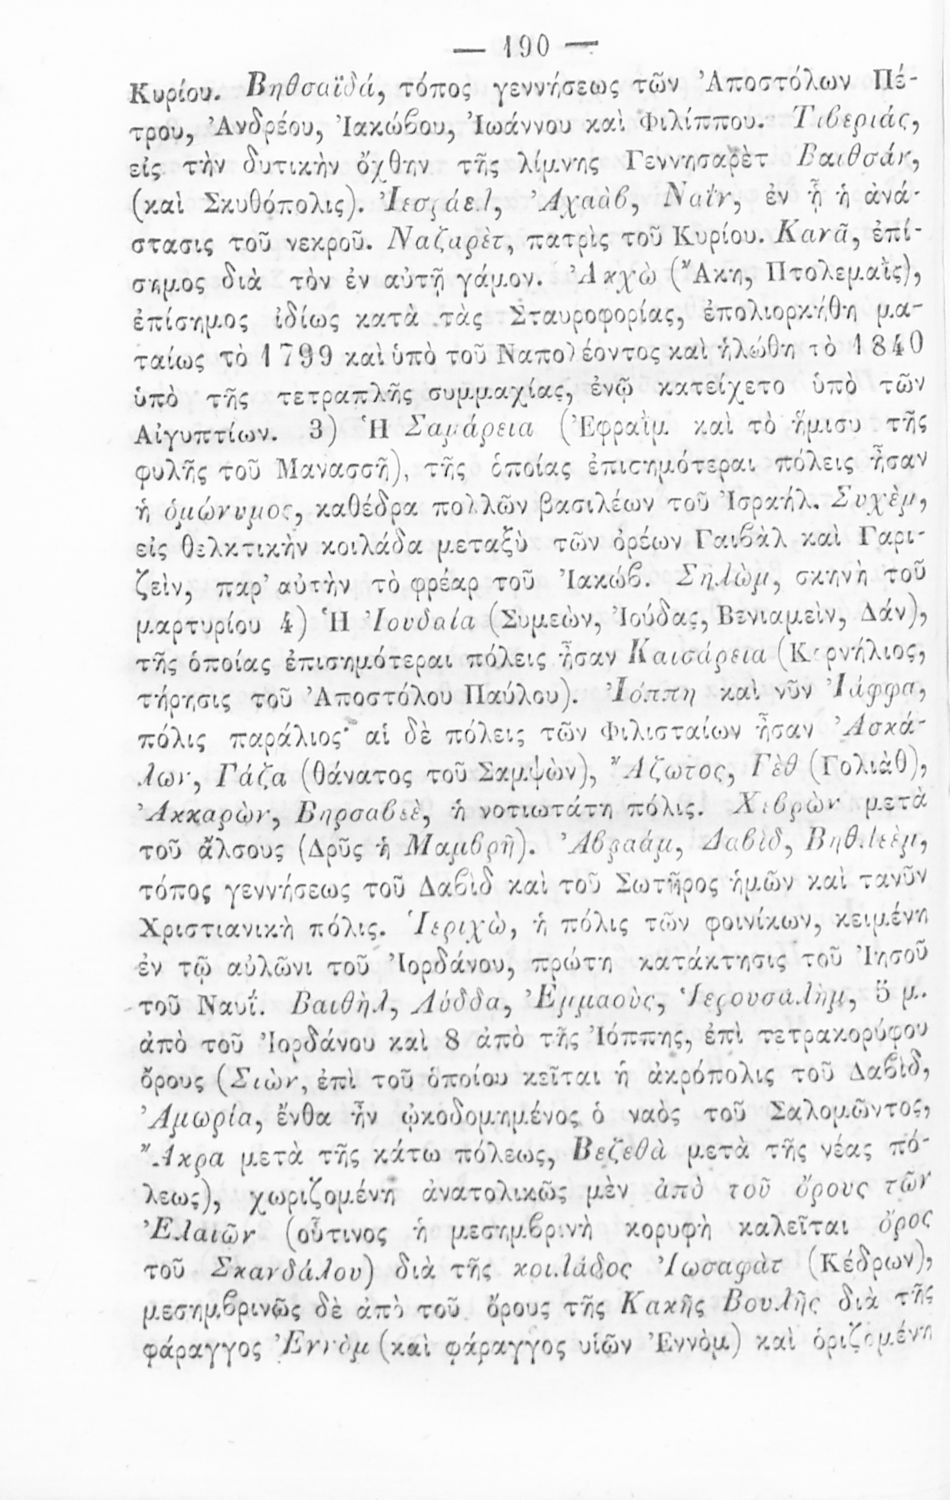 — 190 —
Κυρίου. Βηθσαϊδά, τόπος γεννήσεως τῶν Ἀποστόλων Πέ-
τρου, Ἀνδρέου, Ἰακώβου, Ἰωάννου καὶ Φιλίππου. Τιβεριάς,
εἰς τὴν δυτικὴν ὄχθην τῆς λίμνης Γεννησαρὲτ Βαιθσάν,
(καὶ Σκυθόπολις). Ἰεσράελ, Ἀχαὰβ, Ναΐν, ἐν ᾗ ἡ ἀνά-
στασις τοῦ νεκροῦ. Ναζαρὲτ, πατρὶς τοῦ Κυρίου. Κανᾶ, ἐπί-
σημος διὰ τὸν ἐν αὐτῇ γάμον. Ἀκχὼ (Ἄκη, Πτολεμαῒς),
ἐπίσημος ἰδίως κατὰ τὰς Σταυροφορίας, ἐπολιορκήθη μα-
ταίως τὸ 1799 καὶ ὑπὸ τοῦ Ναπολέοντος καὶ ἡλώθη τὸ 1840
ὑπὸ τῆς τετραπλῆς συμμαχίας, ἐνῷ κατείχετο ὑπὸ τῶν
Αἰγυπτίων. 3) Ἡ Σαμάρεια (Ἐφραῒμ καὶ τὸ ἥμισυ τῆς
φυλῆς τοῦ Μανασσῆ), τῆς ὁποίας ἐπισημότεραι πόλεις ἦσαν
ἡ ὁμώνυμος, καθέδρα πολλῶν βασιλέων τοῦ Ἰσραήλ. Συχὲμ,
εἰς θελκτικὴν κοιλάδα μεταξὺ τῶν ὀρέων Γαιβὰλ καὶ Γαρι-
ζεὶν, παρ' αὐτὴν τὸ φρέαρ τοῦ Ἰακώβ. Σηλὼμ, σκηνὴ τοῦ
μαρτυρίου 4) Ἡ Ἰουδαία (Συμεὼν, Ἰούδας, Βενιαμεὶν, Δάν),
τῆς ὁποίας ἐπισημότεραι πόλεις ἦσαν Καισάρεια (Κορνήλιος,
τήρησις τοῦ Ἀποστόλου Παύλου). Ἰόππη καὶ νῦν Ἰάφφα,
πόλις παράλιος· αἱ δὲ πόλεις τῶν Φιλισταίων ἦσαν Ἀσκά-
λων, Γάζα (θάνατος τοῦ Σαμψὼν), Ἄζωτος, Γὲθ (Γολιὰθ),
Ἀκκαρὼν, Βηρσαβεὲ, ἡ νοτιωτάτη πόλις. Χεβρὼν μετὰ
τοῦ ἄλσους (Δρῦς ἡ Μαμβρῆ). Ἀβραάμ, Δαβὶδ, Βηθλεὲμ,
τόπος γεννήσεως τοῦ Δαβὶδ καὶ τοῦ Σωτῆρος ἡμῶν καὶ τανῦν
Χριστιανικὴ πόλις. Ἱεριχὼ, ἡ πόλις τῶν φοινίκων, κειμένη
ἐν τῷ αὐλῶνι τοῦ Ἰορδάνου, πρώτη κατάκτησις τοῦ Ἰησοῦ
τοῦ Ναυΐ. Βαιθὴλ, Λύδδα, Ἐμμαοὺς, Ἱερουσαλὴμ, 5 μ.
ἀπὸ τοῦ Ἰορδάνου καὶ 8 ἀπὸ τῆς Ἰόππης, ἐπὶ τετρακορύφου
ὄρους (Σιὼν, ἐπὶ τοῦ ὁποίου κεῖται ἡ ἀκρόπολις τοῦ Δαβὶδ,
Ἀμωρία, ἔνθα ἦν ᾠκοδομημένος ὁ ναὸς τοῦ Σαλομῶντος,
Ἄκρα μετὰ τῆς κάτω πόλεως, Βεζεθὰ μετὰ τῆς νέας πό-
λεως), χωριζομένη ἀνατολικῶς μὲν ἀπὸ τοῦ ὄρους τῶν
Ἐλαιῶν (οὗτινος ἡ μεσημβρινὴ κορυφὴ καλεῖται ὄρος
τοῦ Σκανδάλου) διὰ τῆς κοιλάδος Ἰωσαφὰτ (Κέδρων),
μεσημβρινῶς δὲ ἀπὸ τοῦ ὄρους τῆς Κακῆς Βουλῆς διὰ τῆς
φάραγγος Ἐννὸμ (καὶ φάραγγος υἱῶν Ἐννὸμ) καὶ ὁριζομένη